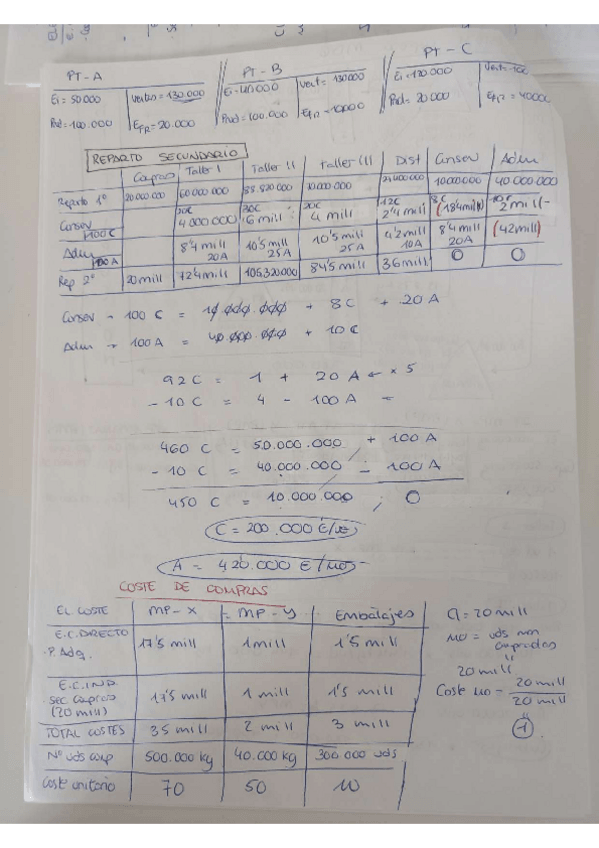 PT-A
Ei = 50.000 Ventas = 130.000
Prod = 100.000 Efr = 20.000
PT-B
Ei = 40.000 Vent = 130.000
Prod = 100.000 Efr = 10000
PT-C
Prod = 20.000
REPARTO SECUNDARIO
Compras Taller I Taller II Taller III Dist Conserv Adm
Reparto 1º 20.000.000 60.000.000 10.000.000 10000000 40.000.000
Conserv 100C 20C 4 000 000 30C 6 mill 20C 4 mill 12C 2'4 mill 8C 10C 2 mill
Adm 100A 8'4 mill 20A 10'5 mill 25A 10'5 mill 25A 4'2 mill 10A 8'4 mill 20A (42 mill)
Rep 2º 20 mill 72'4 mill 105,320.000 84'5 mill 36 mill 0 0
Conserv → 100 C = 10.000.000 + 8C + 20A
Adm → 100A = 40.000.000 + 10C
92C = 1 + 20A ← x5
- 10C = 4 - 100A
460 C = 50.000.000 + 100A
- 10 C = 40.000.000 - 100A
450 C = 10.000.000 ; 0
C = 200.000 €/uo
A = 420.000 €/uo
COSTE DE COMPRAS
EL. COSTE MP-X MP-Y Embalajes
E.C. DIRECTO
·P. Adq. 17'5 mill 1 mill 1'5 mill
E.C. IND
sec compras 17'5 mill 1 mill 1'5 mill
(20 mill)
TOTAL COSTES 35 mill 2 mill 3 mill
Nº uds comp 500.000 kg 40.000 kg 300 000 uds
Coste unitario 70 50 10
CI = 20 mill
uo = uds mon
compradas
20 mill
Coste uo = 20 mill / 20 mill
1